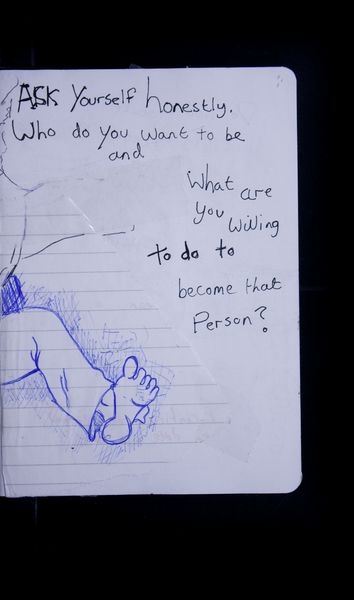 ASK Yourself honestly.
Who do you want to be
and
What are
you willing
to do to
become that
Person?